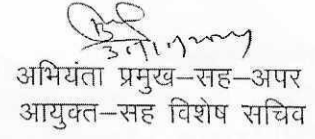 अभियंता प्रमुख–सह–अपर
आयुक्त–सह विशेष सचिव